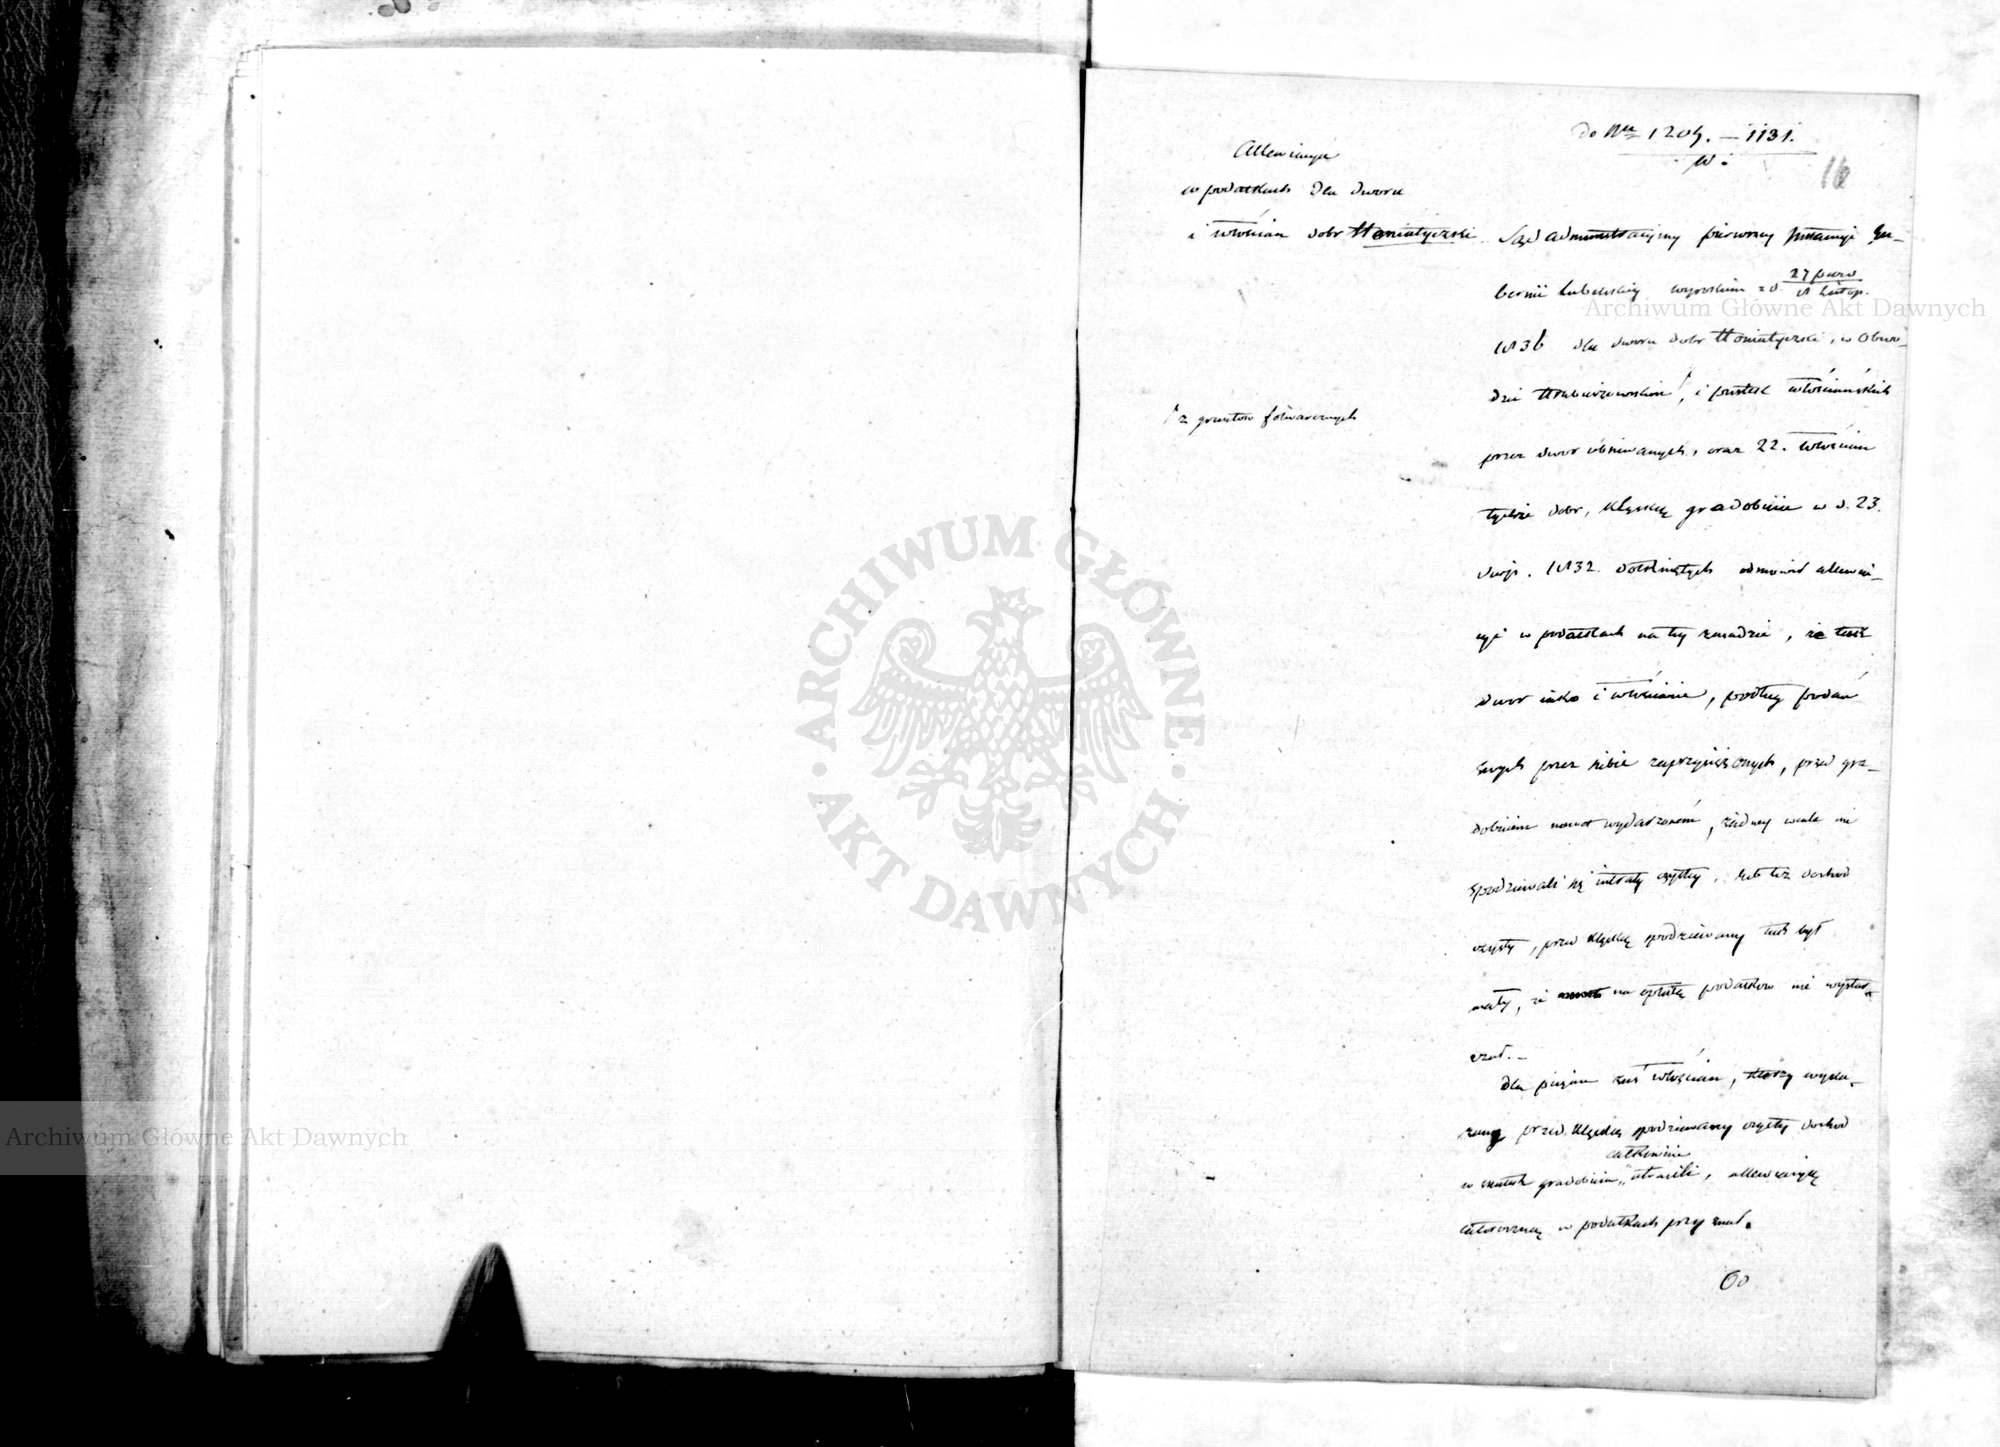 do Nru 1204. — 1131.
W.
16
Allewiacya
w podatkach dla dworu
i włościan dobr Honiatyczki
Sąd administracyjny pierwszey Instancyi Gu-
bernii Lubelskiey wyrokiem z d. 27 paźd / 8 Listop.
1836 dla dworu dobr Honiatyczki, w Obwo-
dzie Hrubieszowskim, i pustek włościańskich
z gruntow folwarcznych
przez dwor obsiewanych, oraz 22. włościan
tychże dobr, klęską gradobicia w d. 23.
1832. dotkniętych odmowił allewia-
cyi w podatkach na tey zasadzie, że tak
dwor iako i włościanie, podług podań
swych przez siebie zaprzysiężonych, przed gra-
dobiciem nawet wydarzonem, żadney wcale nie
spodziewali się intraty czystey, lub też dochod
czysty, przed klęską spodziewany tak był
mały, że na opłatę podatkow nie wystar-
czał. —
Dla pięciu zaś włościan, ktorzy wyka-
zany przed klęską spodziewany czysty dochod
całkowicie
w skutek gradobicia utracili, allewiacyą
całoroczną w podatkach przyznał.
Od
Archiwum Główne Akt Dawnych
Archiwum Główne Akt Dawnych
ARCHIWUM GŁÓWNE AKT DAWNYCH